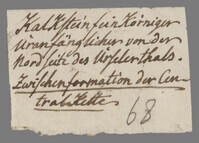 Kalkstein feinkörniger
Uranfänglicher von der
Nord seite des Urselerthals.
Zwischenformation der Cen-
tralkette
68